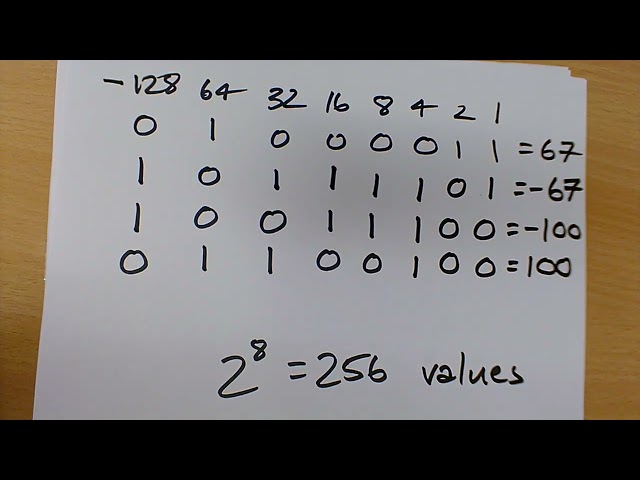 -128 64 32 16 8 4 2 1
0 1 0 0 0 0 1 1 = 67
1 0 1 1 1 1 0 1 = -67
1 0 0 1 1 1 0 0 = -100
0 1 1 0 0 1 0 0 = 100
2⁸ = 256 values